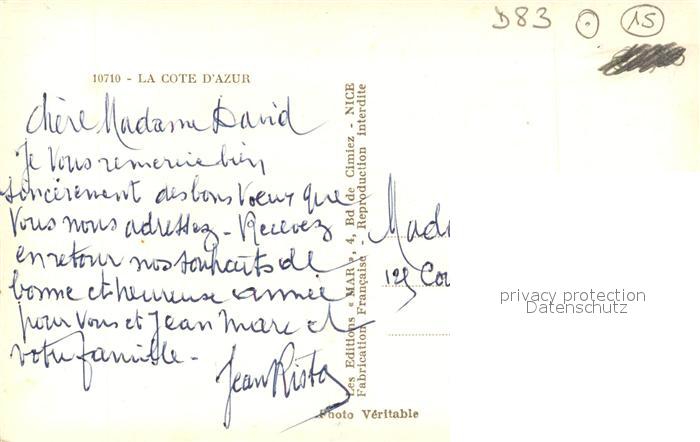 D83 15
10710 - LA COTE D'AZUR
chère Madame David
Je vous remercie bien
sincèrement des bons voeux que
vous nous adressez - Recevez
en retour nos souhaits de
bonne et heureuse année
pour vous et Jean Marc et
votre famille -
Jean Risto
Les Editions « MAR », 4, Bd de Cimiez - NICE
Fabrication Française - Reproduction interdite
Photo Véritable
Mad
129 Cou
privacy protection
Datenschutz